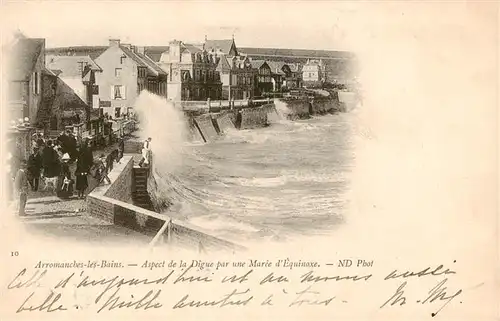 10
Arromanches-les-Bains. — Aspect de la Digue par une Marée d'Équinoxe. — ND Phot
Celle d'aujourd'hui est à moins aussi
belle. Mille amitiés à tous. M. M.